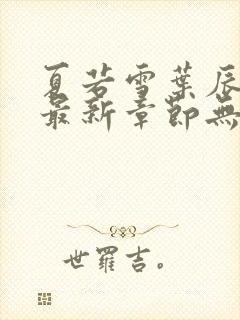 夏若雪葉辰
最新章節無
世羅吉。